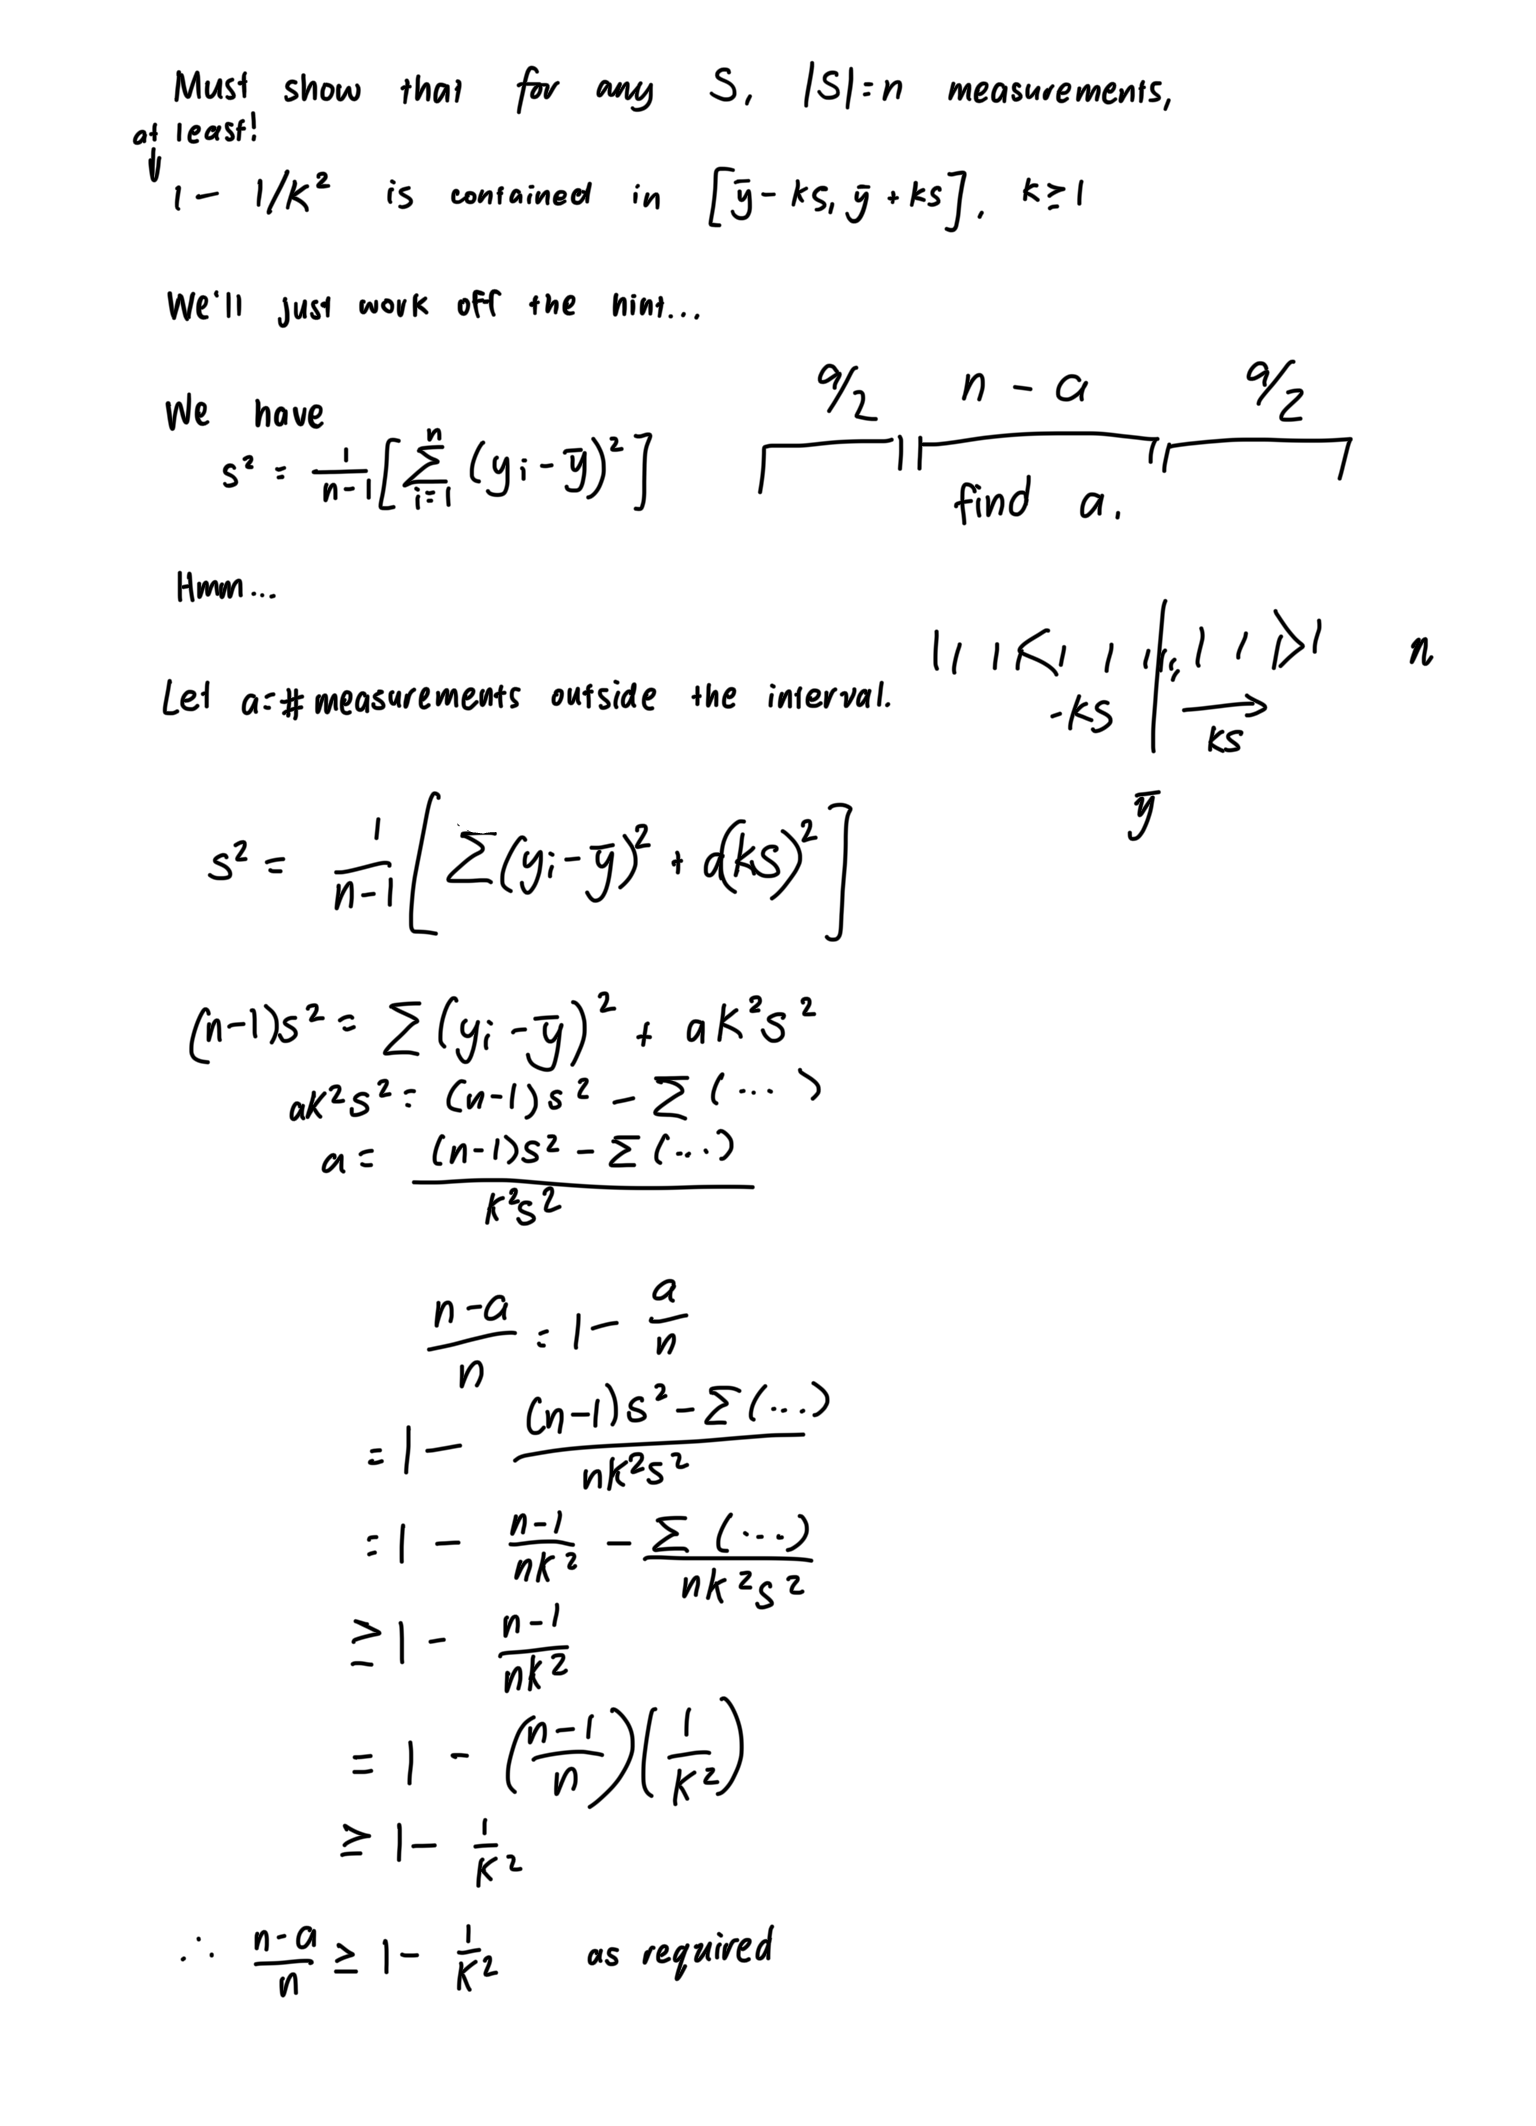 Must show that for any S, |S|=n measurements,
at least!
↓
1 - 1/K² is contained in [ȳ - ks, ȳ + ks], k ≥ 1
We'll just work off the hint...
a/2 n - a a/2
We have
s² = 1/(n-1) [Σ_{i=1}^{n} (yi - ȳ)²]
find a.
Hmm...
n
Let a = # measurements outside the interval.
-ks ks
ȳ
s² = 1/(n-1) [Σ(yi - ȳ)² + a(ks)²]
(n-1)s² = Σ(yi - ȳ)² + aK²s²
aK²s² = (n-1)s² - Σ(...)
a = ((n-1)s² - Σ(...))/(K²s²)
(n-a)/n = 1 - a/n
= 1 - ((n-1)s² - Σ(...))/(nk²s²)
= 1 - (n-1)/(nk²) - Σ(...)/(nk²s²)
≥ 1 - (n-1)/(nk²)
= 1 - ((n-1)/n)(1/K²)
≥ 1 - 1/K²
∴ (n-a)/n ≥ 1 - 1/K² as required